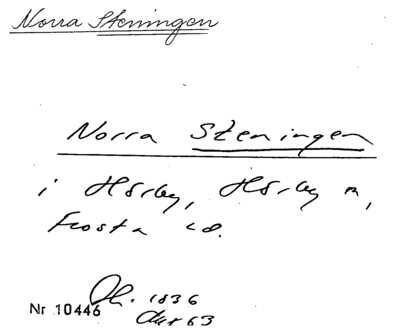 Norra Steningen
Norra Steningen
i Hörby, Hörby sn,
Frosta hd.
1836
Nr 10446
63